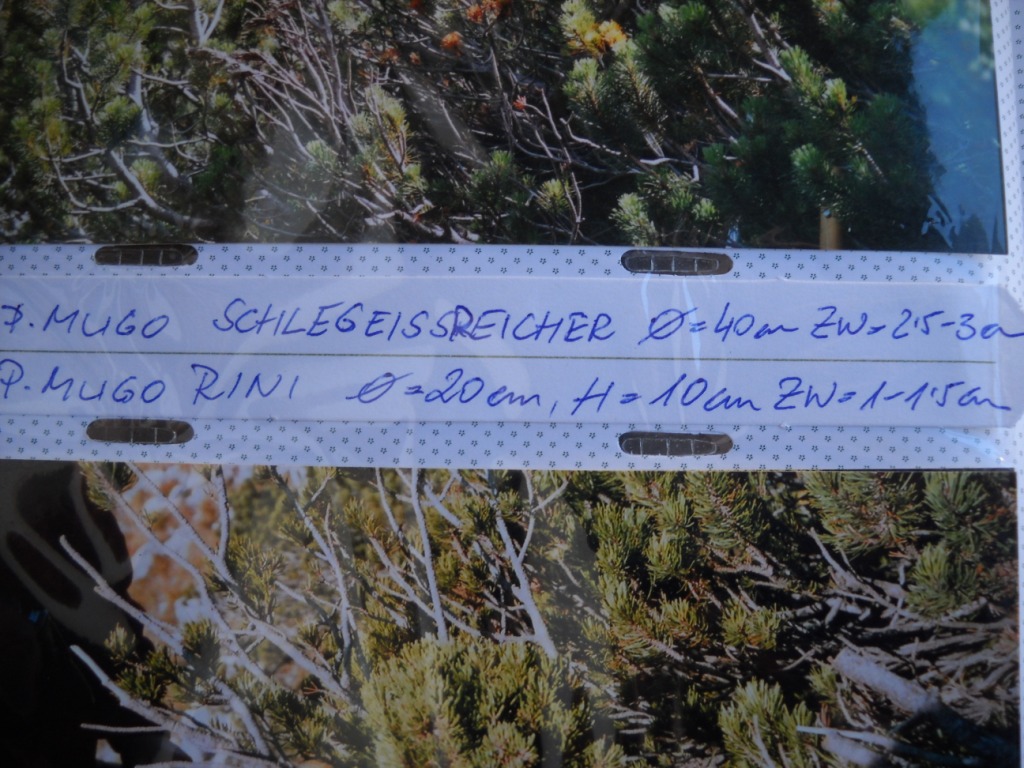 P. MUGO SCHLEGEISSREICHER Ø=40cm ZW=2'5-3cm
P. MUGO RINI Ø=20cm, H=10cm ZW=1-1'5cm